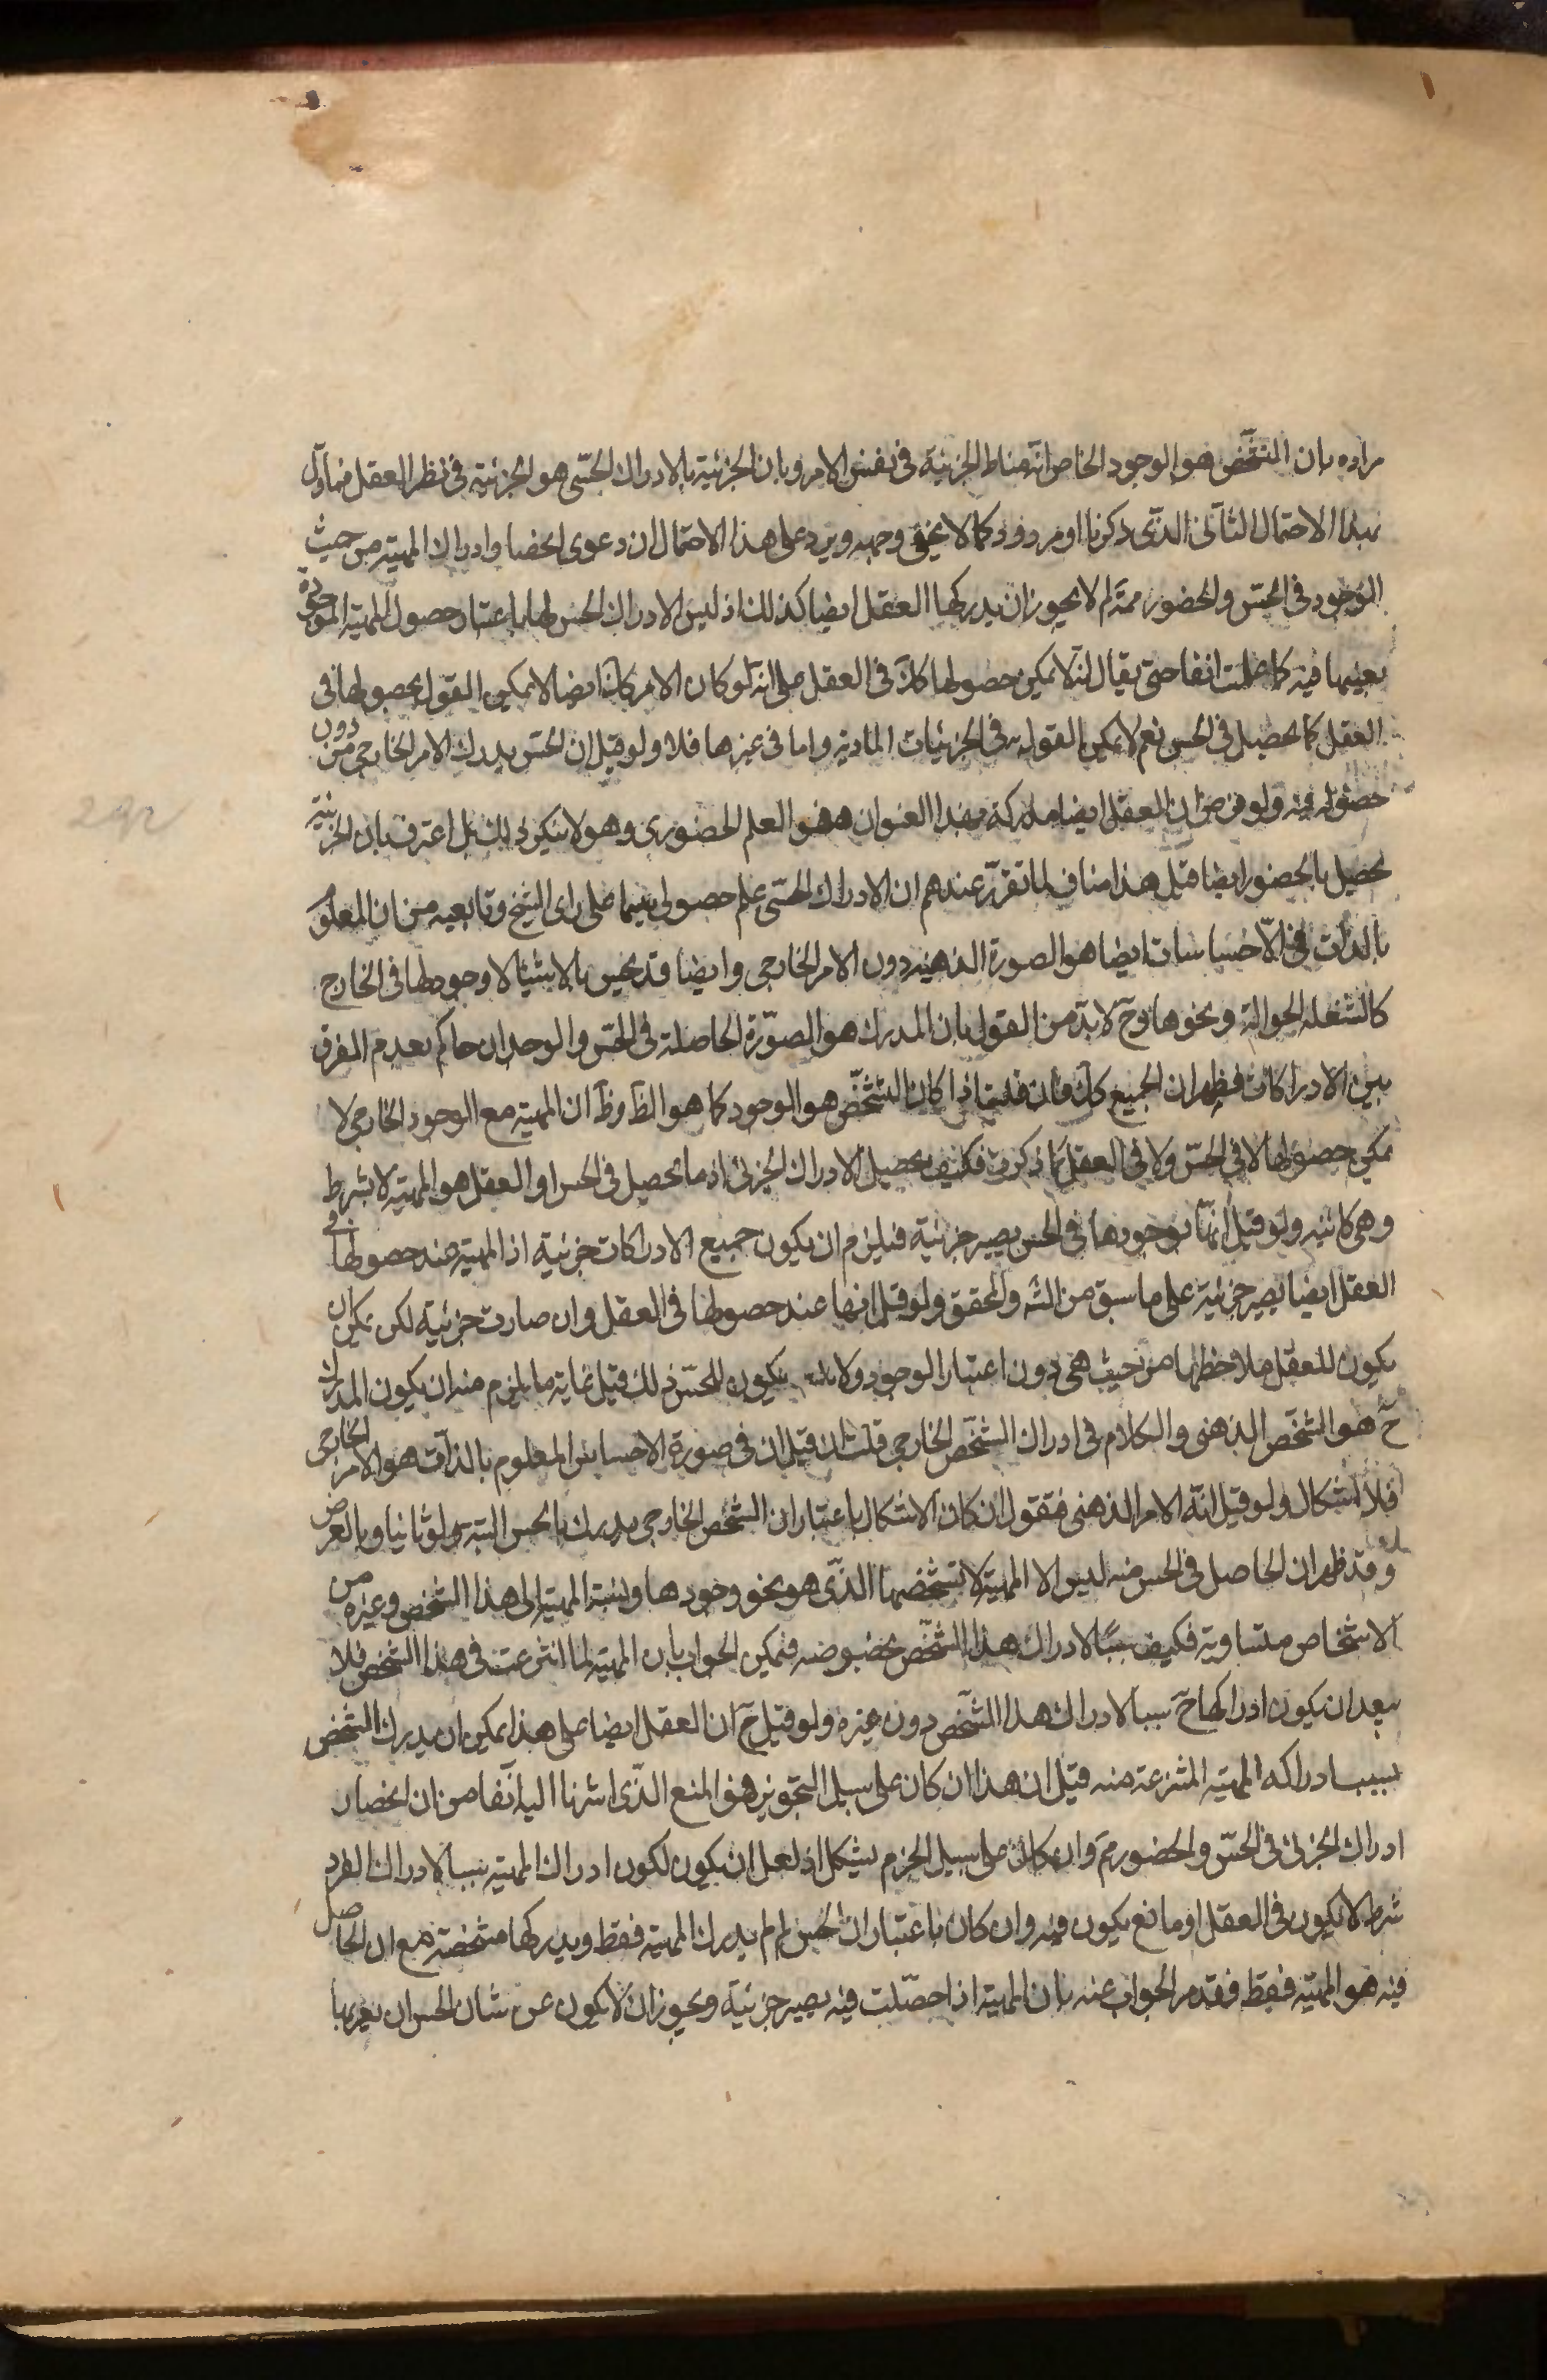 مراده بان التشخّص هو الوجود الخاص انّه مناط الجزئية فى نفس الامر وبان الجزئية بالادراك الحسّى هو الجزئية فى نظر العقل فمأوّل
بهذا الاحتمال الثانى الذى ذكرنا او مردود كما لا يخفى وجهه ويرد على هذا الاحتمال ان دعوى انحصار ادراك المهية من حيث
الوجود فى الحسّ والحضور ممّ لم لا يجوز ان يدركها العقل ايضا كذلك اذ ليس الادراك الحس لها باعتبار حصول المهية الموجودة
بعينها فيه كما علمت انفا حتى يقال انّه لا يمكن حصولها كك فى العقل على انّه لو كان الامر كك ايضا لا يمكن القول بحصولها فى
العقل كما يحصل فى الحس نعم لا يمكن القول به فى الجزئيات المادية واما فى غيرها فلا ولو قيل ان الحسّ يدرك الامر الخارجى من دون
حصوله فيه ولو فرض ان العقل ايضا مدركة بهذا العنوان فهو العلم الحضورى وهو لا ينكر ذلك بل اعترف بان الجزئية
يحصل بالحضور ايضا قيل هذا مناف لما تقرّر عندهم ان الادراك الحسّى علم حصولى سيما على راى الشيخ وتابعيه من ان المعلوم
بالذات فى الاحساسات ايضا هو الصورة الذهنية دون الامر الخارجى وايضا قد يحس بالاشياء لا وجود لها فى الخارج
كالشعلة الجوالة ونحوها وح لا بدّ من القول بان المدرك هو الصّورة الحاصلة فى الحسّ والوجدان حاكم بعدم الفرق
بين الادراكات فظهر ان الجميع كك فان قلت اذا كان التشخّص هو الوجود كما هو الظ وظ ان المهية مع الوجود الخارجى لا
يمكن حصولها لا فى الحسّ ولا فى العقل كما ذكرت فكيف يحصل الادراك الجزئى اذ ما يحصل فى الحس او العقل هو المهية لا بشرط
وهى كلية ولو قيل انها بوجودها فى الحس يصير جزئية فيلزم ان يكون جميع الادراكات جزئية اذ المهية عند حصولها فى
العقل ايضا يصير جزئية على ما سبق من الشه والمحقق ولو قيل انها عند حصولها فى العقل وان صارت جزئية لكن يمكن ان
يكون للعقل ملاحظتها من حيث هى دون اعتبار الوجود ولا يكون للحسّ ذلك قيل غاية ما يلزم منه ان يكون المدرك
ح هو الشخص الذهنى والكلام فى ادراك الشخص الخارجى قلت ان قيل ان فى صورة الاحساس المعلوم بالذات هو الامر الخارجى
فلا اشكال ولو قيل انّه الامر الذهنى فنقول ان كان الاشكال باعتبار ان الشخص الخارجى يدرك بالحس البته ولو ثانيا وبالعرض
وقد ظهر ان الحاصل فى الحس منه ليس الا المهية لا بتشخصها الذى هو نحو وجودها ونسبة المهية الى هذا الشخص وغيره من
الاشخاص متساوية فكيف سببا لادراك هذا الشخص بخصوصه فيمكن الجواب بان المهية لما انتزعت فى هذا الشخص فلا
يبعد ان يكون ادراكها ح سببا لادراك هذا الشخص دون غيره ولو قيل ح ان العقل ايضا على هذا يمكن ان يدرك الشخص
بسبب ادراكه المهية المنتزعة منه قيل ان هذا ان كان على سبيل التجويز فهو المنع الذّى اشرنا اليه آنفا من ان انحصار
ادراك الجزئى فى الحسّ والحضور مم وان كان على سبيل الجزم يشكل اذ لعل ان يكون لكون ادراك المهية سببا لادراك الفرد
شرط لا يكون فى العقل او مانع يكون فيه وان كان باعتبار ان الحس لم لم يدرك المهية فقط ويدركها متشخصة مع ان الحاصل
فيه هو المهية فقط فقد مر الجواب عنه بان المهية اذا حصلت فيه يصير جزئية ويجوز ان لا يكون من شان الحس ان يعريها